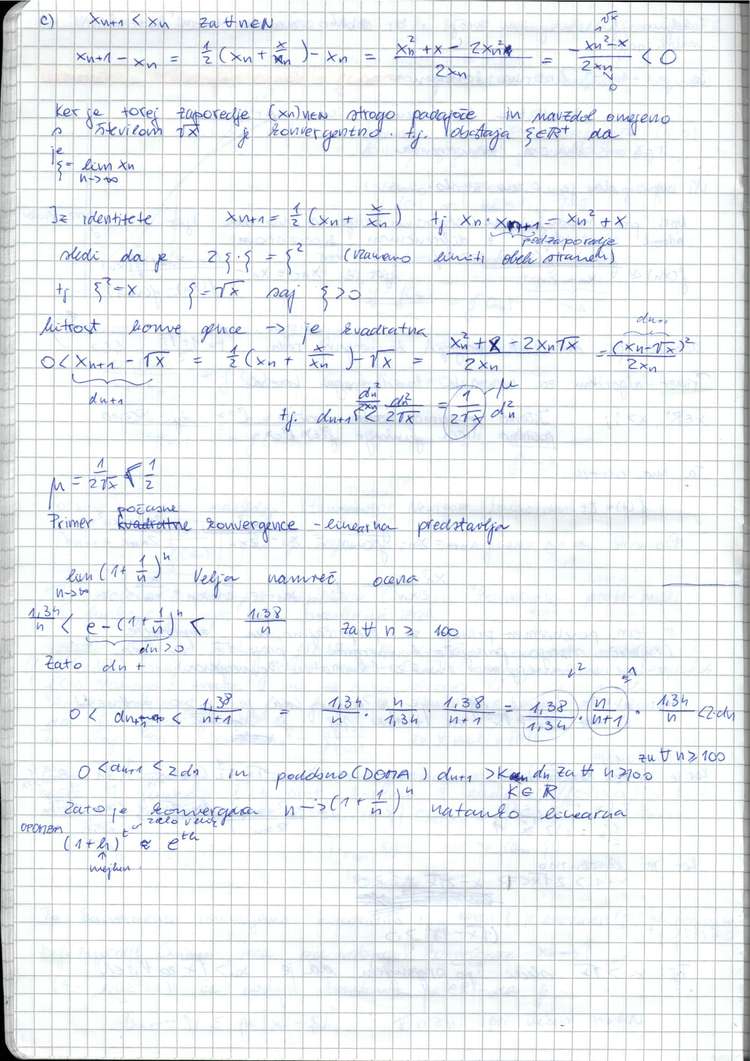 c) x_{n+1} < x_n za ∀n∈N
x_{n+1} - x_n = 1/2 (x_n + x/x_n) - x_n = (x_n² + x - 2x_n²)/(2x_n) = (-x_n² - x)/(2x_n) < 0
√x
0
Ker je torej zaporedje (x_n)n∈N strogo padajoče in navzdol omejeno
s številom √x je konvergentno. tj. obstaja ξ∈R⁺ da
je
ξ = lim x_n
n→∞
Iz identitete x_{n+1} = 1/2 (x_n + x/x_n) tj x_n · x_{n+1} = x_n² + x
podzaporedje
sledi da je 2ξ·ξ = ξ² (vzamemo limiti obeh straneh)
tj ξ² = x ξ = √x saj ξ > 0
hitrost konvergence → je kvadratna
d_{n+1}
0 < x_{n+1} - √x = 1/2 (x_n + x/x_n) - √x = (x_n² + x - 2x_n√x)/(2x_n) = (x_n - √x)²/(2x_n)
d_{n+1}
tj. d_{n+1} = d_n²/(2x_n) < d_n²/(2√x) = 1/(2√x) d_n²
μ
μ = 1/(2√x) < 1/2
počasne
Primer kvadratne konvergence - linearna predstavlja
lim (1 + 1/n)^n Velja namreč ocena
n→∞
1,34/n < e - (1 + 1/n)^n < 1,38/n za ∀ n ≥ 100
d_n > 0
Zato d_n +
0 < d_{n+1} < 1,38/(n+1) = 1,34/n · n/1,34 · 1,38/(n+1) = 1,38/1,34 · n/(n+1) · 1,34/n < 2·d_n
za ∀ n ≥ 100
0 < d_{n+1} < 2d_n in podobno (DOMA) d_{n+1} > K d_n za ∀ n ≥ 100
K ∈ R
Zato je konvergenca n → (1 + 1/n)^n natanko linearna
OPOMBA
zelo velik
(1+h)^t ≈ e^{th}
majhen